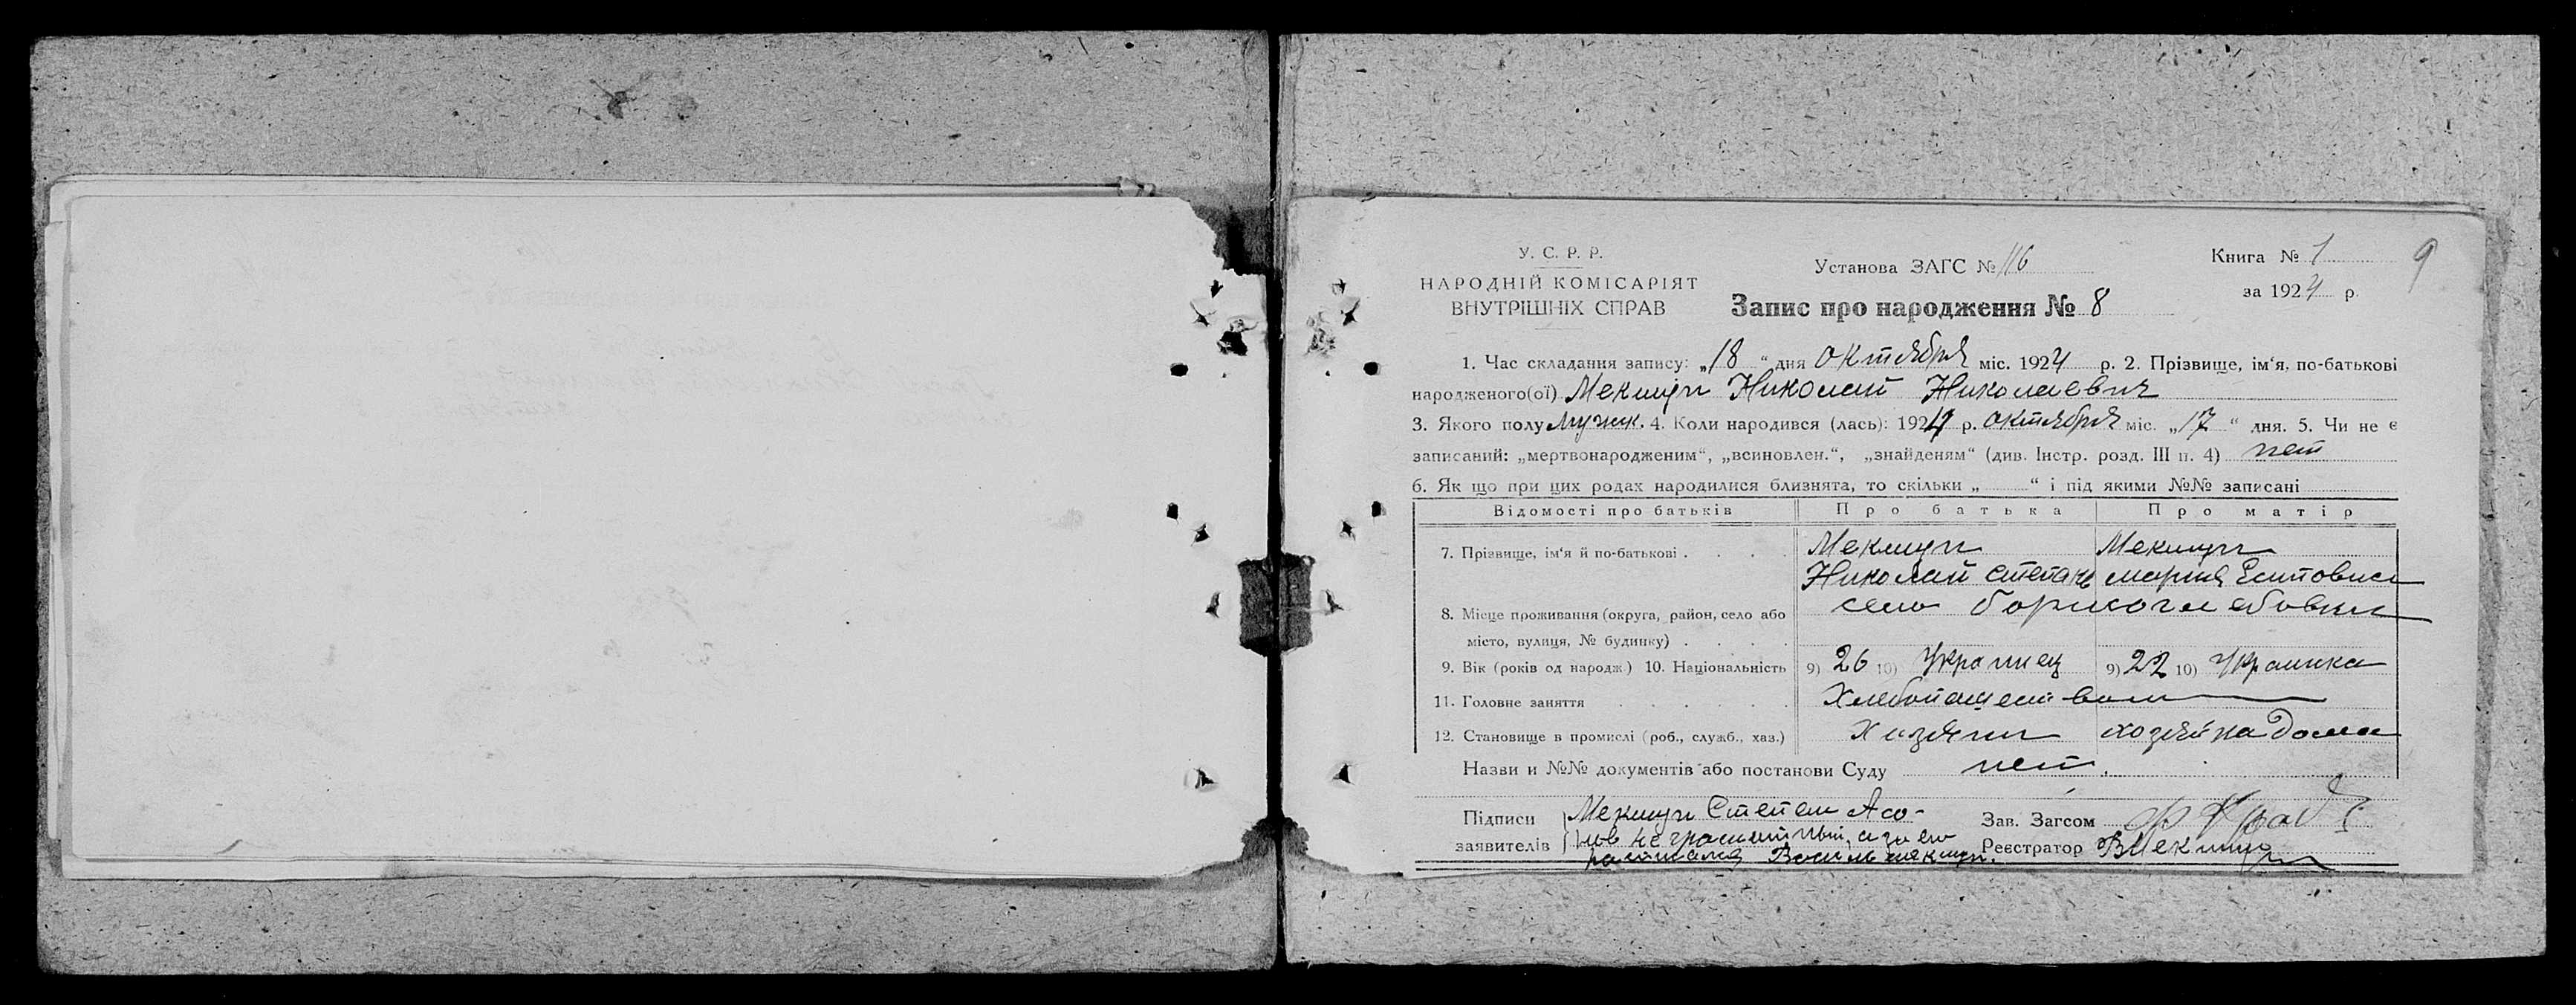 У. С. Р. Р.
НАРОДНІЙ КОМІСАРІЯТ
ВНУТРІШНІХ СПРАВ
Установа ЗАГС № 116
Книга № 1
9
за 1924 р.
Запис про народження № 8
1. Час складання запису: „18“ дня октября міс. 1924 р. 2. Прізвище, ім‘я, по-батькові
народженого(ої) Мекшун Николай Николаевич
3. Якого полу мужик. 4. Коли народився (лась): 1924 р. октября міс. „17“ дня. 5. Чи не є
записаний: „мертвонародженим“, „всиновлен.“, „знайденям“ (див. Інстр. розд. III п. 4) нет
6. Як що при цих родах народилися близнята, то скільки „ “ і під якими №№ записані
Відомості про батьків Про батька Про матір
7. Прізвище, ім‘я й по-батькові . . . . Мекшун Мекшун
Николай Степан Мария
8. Місце проживання (округа, район, село або село
місто, вулиця, № будинку) . . . .
9. Вік (років од народж.) 10. Національність 9) 26 10) Украинец 9) 22 10) Украинка
11. Головне заняття . . . . . . Хлебопашеством
12. Становище в промислі (роб., служб., хаз.) Хазяин хозяйка дома
Назви и №№ документів або постанови Суду нет.
Підписи Мекшун Степан
заявителів неграмотный, а за его
Василь Мекшун.
Зав. Загсом
Реєстратор В Мекшун